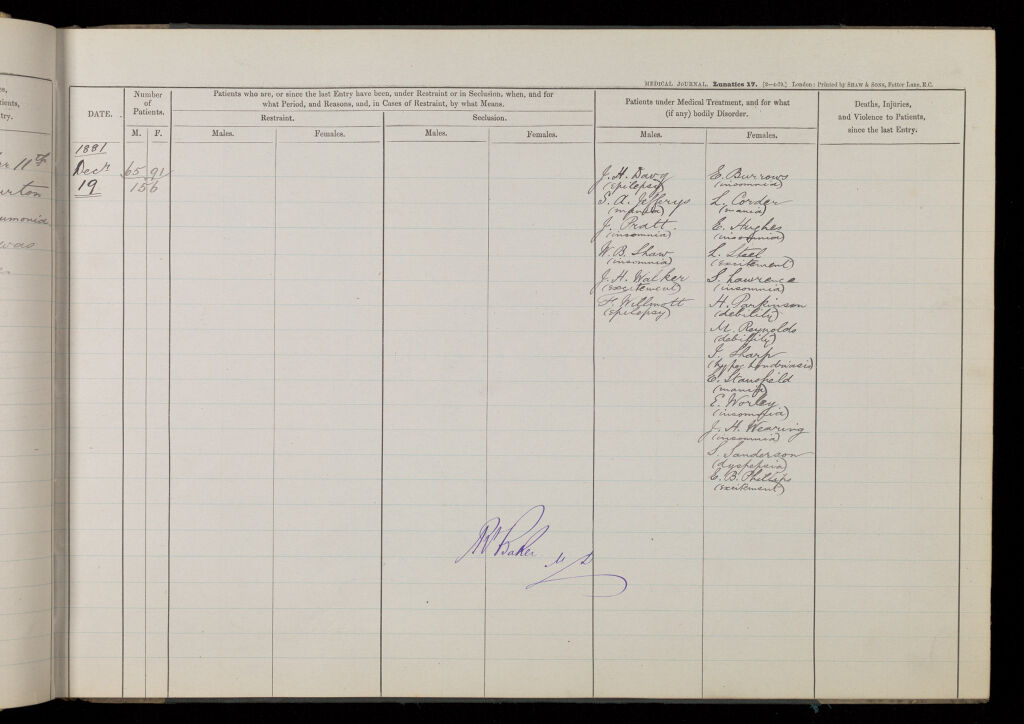 MEDICAL JOURNAL. Lunatics 17. [2—4/79.] London: Printed by SHAW & SONS, Fetter Lane, E.C.
DATE.
Number
of
Patients.
M. F.
Patients who are, or since the last Entry have been, under Restraint or in Seclusion, when, and for
what Period, and Reasons, and, in Cases of Restraint, by what Means.
Restraint. Seclusion.
Males. Females. Males. Females.
Patients under Medical Treatment, and for what
(if any) bodily Disorder.
Males. Females.
Deaths, Injuries,
and Violence to Patients,
since the last Entry.
1881
Decr 65 91
19 156
J. H. Davy
(epilepsy)
S. A. Jefferys
(mania)
J. Pratt.
(insomnia)
W. B. Shaw
(insomnia)
J. H. Walker
(excitement)
F. Willmott
(epilepsy)
E. Burrows
(insomnia)
L. Corder
(mania)
E. Hughes
(insomnia)
L. Steel
(excitement)
S. Lawrence
(insomnia)
H. Parkinson
(debility)
M. Reynolds
(debility)
I. Sharp
(hypochondriasis)
E. Stansfield
(mania)
E. Worley
(insomnia)
J. H. Wearing
(insomnia)
S. Sanderson
(dyspepsia)
E. B. Phillips
(excitement)
Baker M D
er 11th
urton
umonia
was